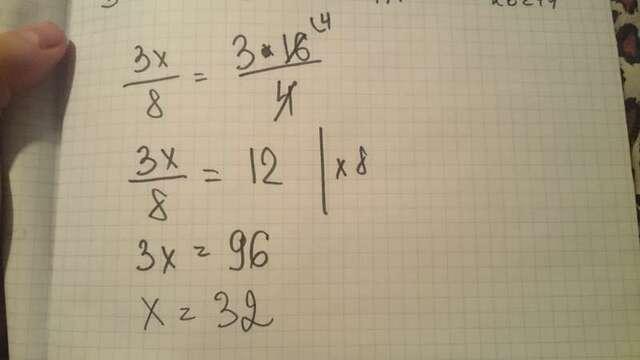 3x/8 = 3 • 16/4 4
3x/8 = 12 | x 8
3x = 96
x = 32